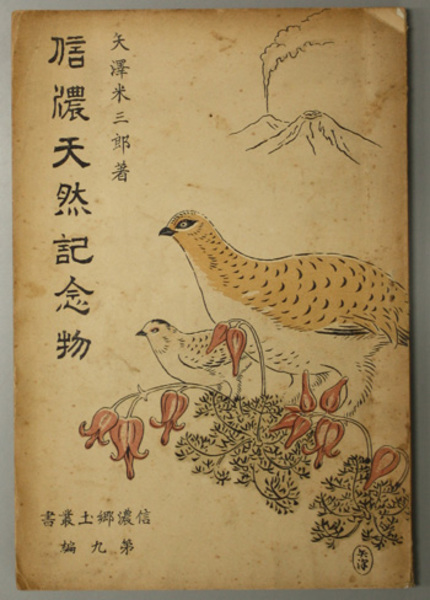 信濃天然記念物
矢澤米三郎著
信濃郷土叢書
第九編
矢澤